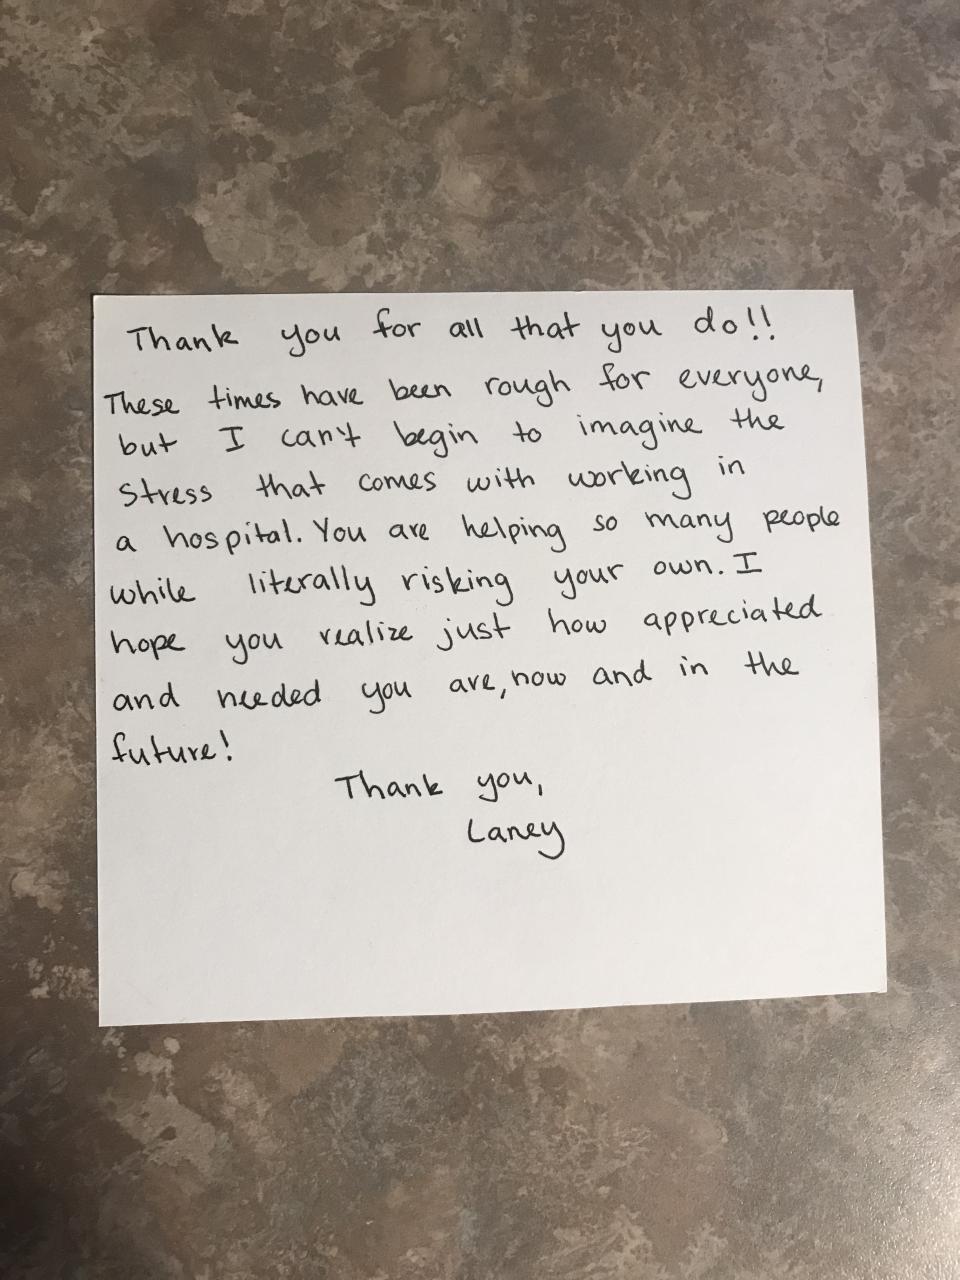 Thank you for all that you do!!
These times have been rough for everyone,
but I can't begin to imagine the
stress that comes with working in
a hospital. You are helping so many people
while literally risking your own. I
hope you realize just how appreciated
and needed you are, now and in the
future!
Thank you,
Laney